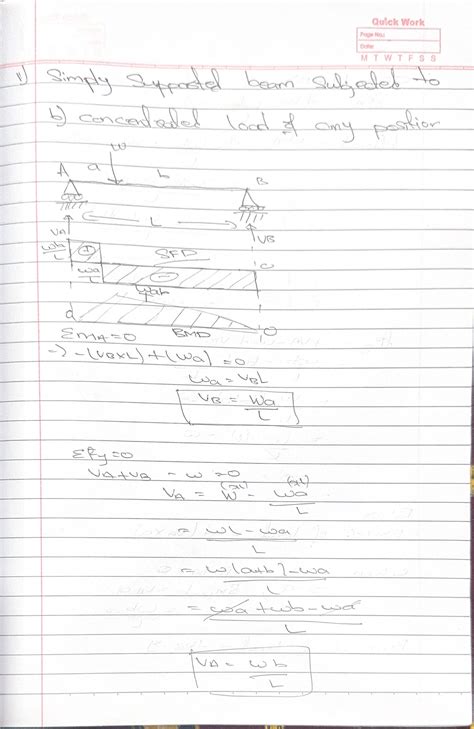 Quick Work
Page No.:
Date:
M T W T F S S
1) Simply Supported beam Subjected to
b) concentrated load of any position
W
A a b B
L
VA VB
Wb/L + SFD
Wa/L - 0
Wab/L
0 BMD 0
ΣMA=0
=) -(VB×L)+(Wa)=0
Wa=VBL
VB = Wa/L
ΣFy=0
VA+VB - W=0
VA = W(×L) - Wa(×L)/L
= WL-Wa/L
= W(a+b)-Wa/L
= Wa+Wb-Wa/L
VA= Wb/L